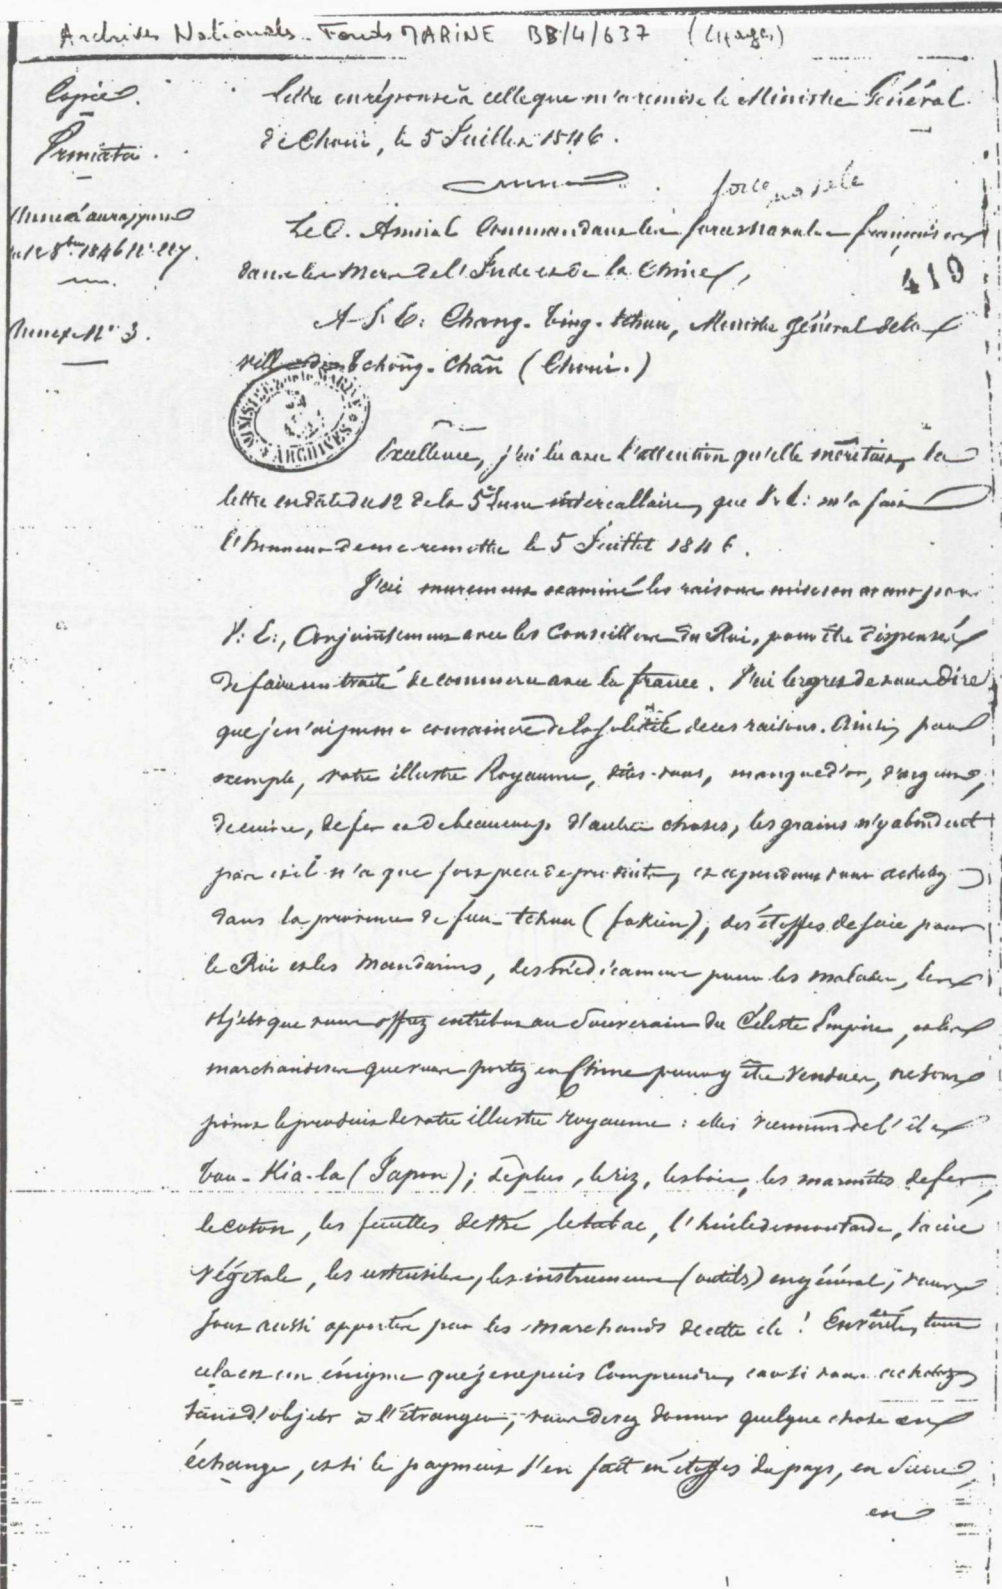 Archives Nationales - Fonds MARINE BB/4/637
Copie.
Primata.
Annexe N° 3.
Lettre en réponse à celle que m'a remise le Ministre Général
de Choui, le 5 Juillet 1846.
force navale
Le C. Amiral Commandant les forces navales françaises
dans les Mers de l'Inde et de la Chine,
410
A S. E. Chang-ting-tchou, Ministre général de la
ville de Tchong-Chan (Choui.)
MINISTÈRE DE LA MARINE
ARCHIVES
Excellence, j'ai lu avec l'attention qu'elle méritait, la
lettre en date du 12 de la 5e lune intercallaire, que V. E. m'a fait
l'honneur de me remettre le 5 Juillet 1846.
J'ai murement examiné les raisons mises en avant par
V. E., Conjointement avec les Conseillers du Roi, pour être dispensé
de faire un traité de commerce avec la france. J'ai le regret de vous dire
que je n'ai pu me convaincre de la solidité de ces raisons. Ainsi, par
exemple, votre illustre Royaume, dites-vous, manque d'or, d'argent,
de cuivre, de fer et de beaucoup d'autres choses, les grains n'y abondent
pas et il n'a que fort peu de produits, et cependant vous achetez
dans la province de fou-tchou (fokien), des étoffes de soie pour
le Roi et les Mandarins, des médicamens pour les malades, les
objets que vous offrez en tribut au Souverain du Céleste Empire, et les
marchandises que vous portez en Chine pour y être vendues, ne sont
point le produit de votre illustre royaume : elles viennent de l'île
Tou-Kia-la (Japon); de plus, le riz, les bois, les marmites de fer,
le coton, les feuilles de thé, le tabac, l'huile de moutarde, la cire
végétale, les ustensiles, les instrumens (outils) en général, vous
sont aussi apportés par les marchands de cette île ! En vérité, tout
cela est un énigme que je ne puis Comprendre, car si vous achetez
tant d'objets à l'étranger, vous devez donner quelque chose en
échange, et si le payment s'en fait en étoffes du pays, en sucre,
en